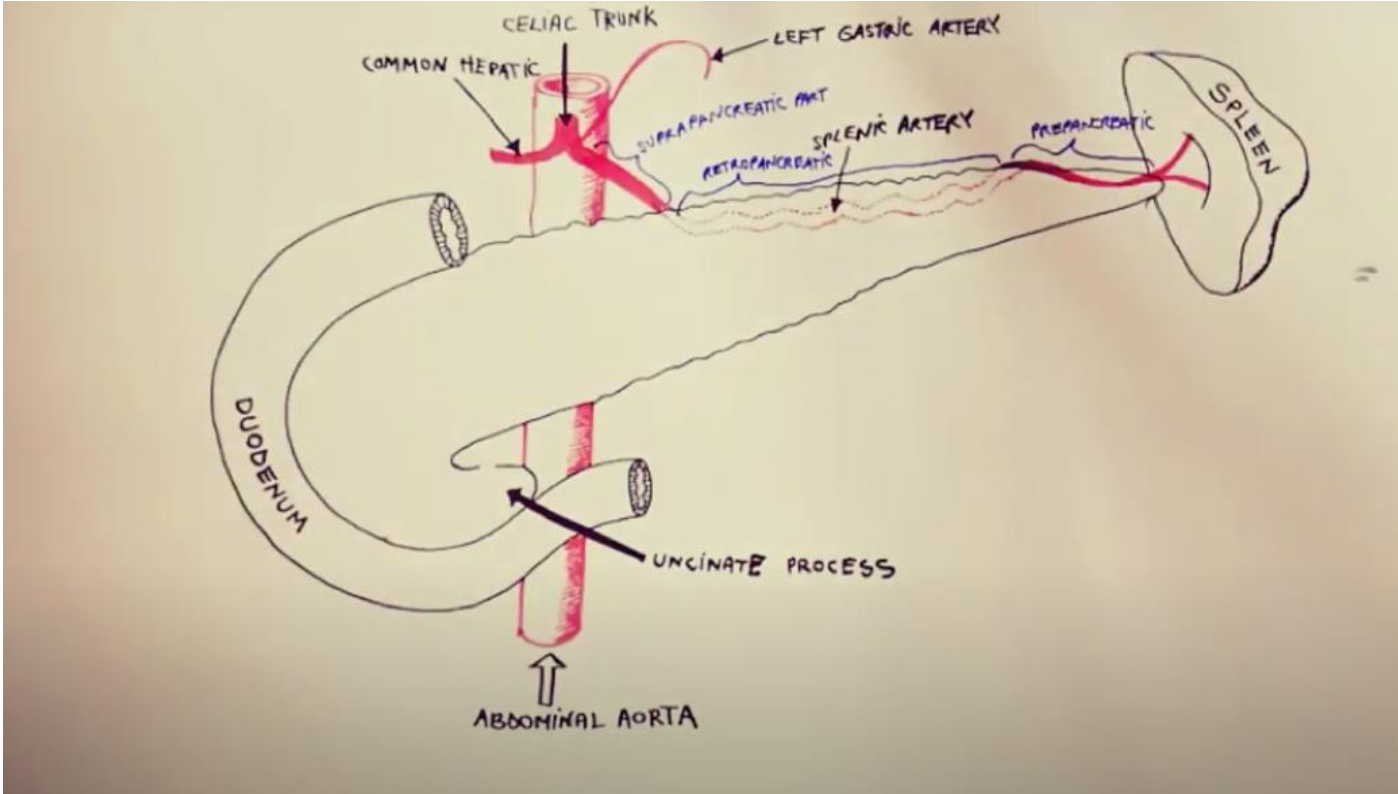 CELIAC TRUNK
LEFT GASTRIC ARTERY
COMMON HEPATIC
SUPRAPANCREATIC PART
SPLENIC ARTERY
PREPANCREATIC
RETROPANCREATIC
SPLEEN
DUODENUM
UNCINATE PROCESS
ABDOMINAL AORTA